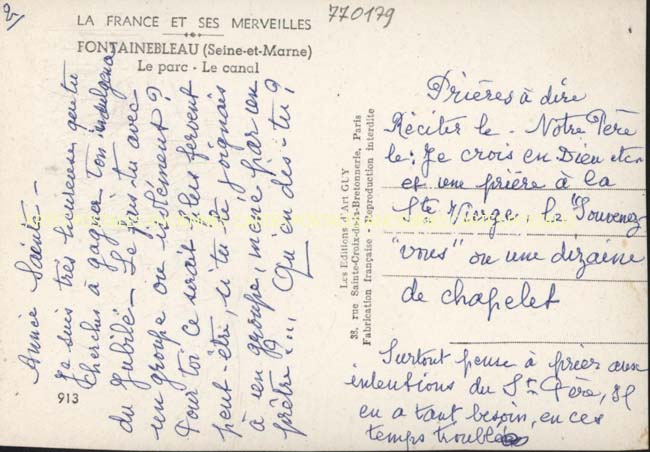 2/
LA FRANCE ET SES MERVEILLES
770179
FONTAINEBLEAU (Seine-et-Marne)
Le parc - Le canal
Année Sainte -
Je suis très heureuse que tu
cherches à gagner ton indulgence
du Jubilé - Le fais-tu avec
un groupe ou isolément ?
Pour toi ce serait plus fervent
peut-être, si tu te joignais
à un groupe, mené par un
prêtre... Qu'en dis-tu ?
913
Les Editions d'Art GUY
38, rue Sainte-Croix-de-la-Bretonnerie, Paris
Fabrication française Reproduction interdite
Prières à dire
Réciter le - Notre Père
le: Je crois en Dieu etc
et une prière à la
Ste Vierge, le "Souvenez-
vous" ou une dizaine
de chapelet
Surtout pense à prier aux
intentions du St Père, Il
en a tant besoin, en ces
temps troublés